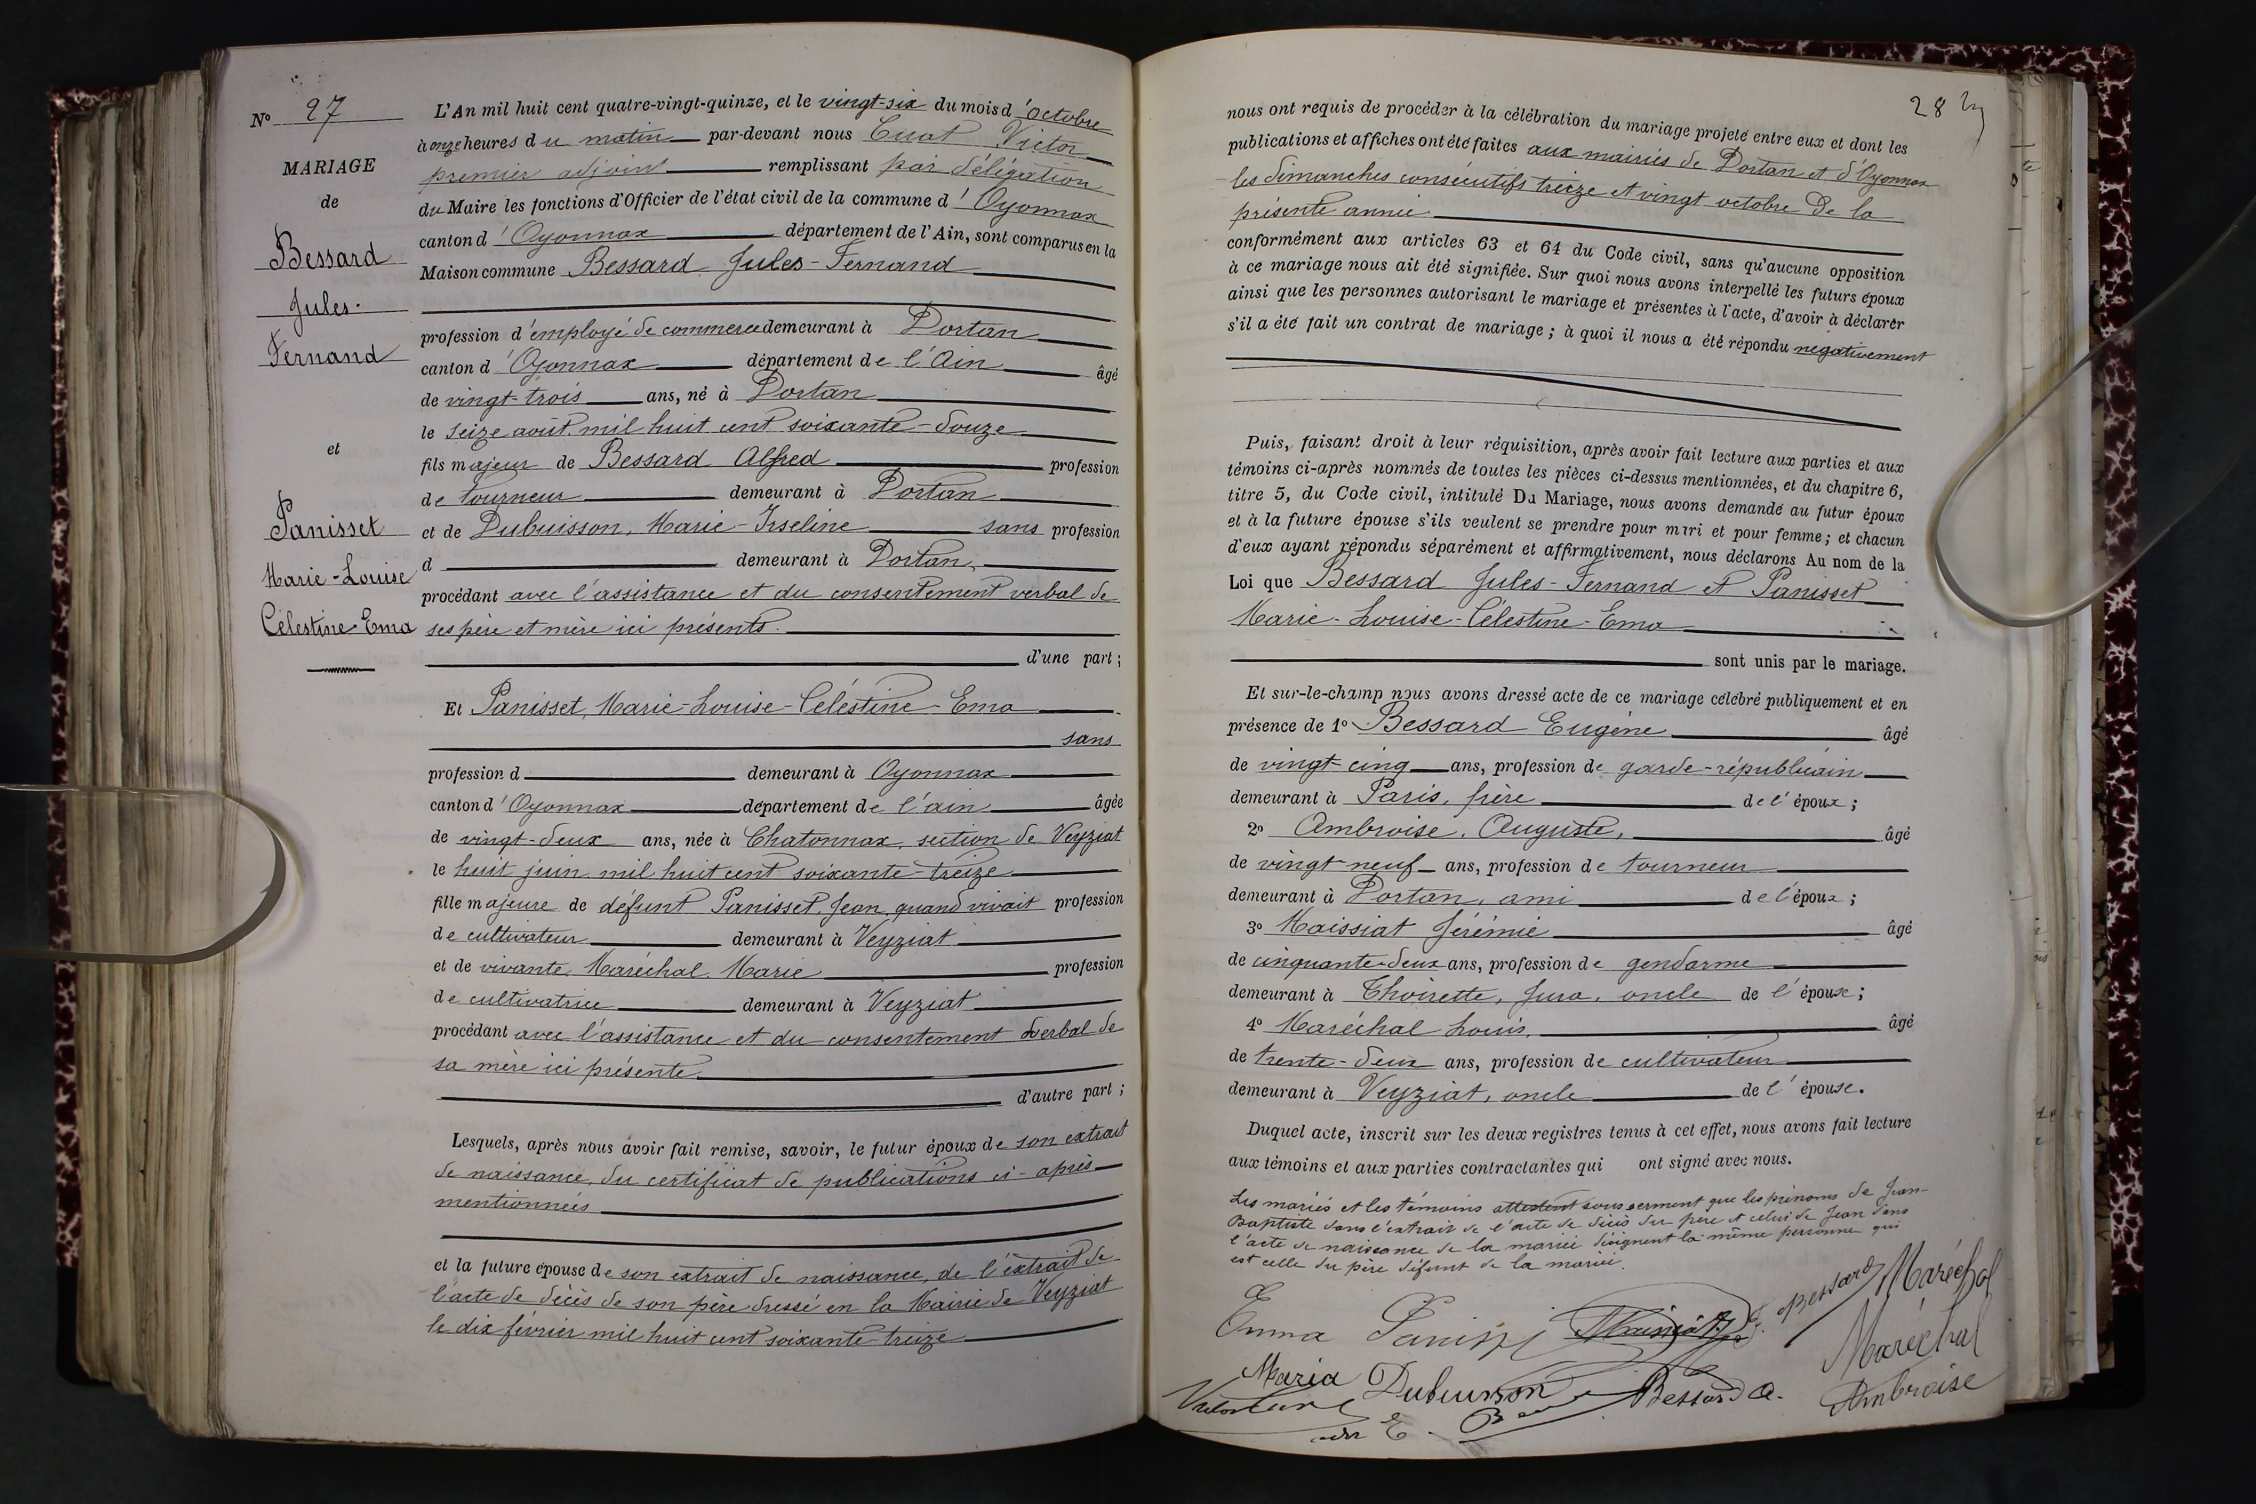 N° 27
MARIAGE
de
Bessard
Jules
Fernand
et
Panisset
Marie-Louise
Célestine Ema
L'An mil huit cent quatre-vingt-quinze, et le vingt-six du mois d'octobre
à onze heures du matin par-devant nous Cuat Victor
premier adjoint remplissant par délégation
du Maire les fonctions d'Officier de l'état civil de la commune d'Oyonnax
canton d'Oyonnax département de l'Ain, sont comparus en la
Maison commune Bessard Jules-Fernand
profession d'employé de commerce demeurant à Dortan
canton d'Oyonnax département de l'Ain âgé
de vingt-trois ans, né à Dortan
le seize août mil huit cent soixante-douze
fils majeur de Bessard Alfred profession
de tourneur demeurant à Dortan
et de Dubuisson, Marie-Irseline sans profession
d demeurant à Dortan,
procédant avec l'assistance et du consentement verbal de
ses père et mère ici présents.
d'une part;
Et Panisset, Marie-Louise-Célestine-Ema
sans
profession d demeurant à Oyonnax
canton d'Oyonnax département de l'ain âgée
de vingt-deux ans, née à Chatonnax, section de Veyziat
le huit juin mil huit cent soixante-treize
fille majeure de défunt Panisset, Jean, quand vivait profession
de cultivateur demeurant à Veyziat
et de vivante Maréchal Marie profession
de cultivatrice demeurant à Veyziat
procédant avec l'assistance et du consentement verbal de
sa mère ici présente
d'autre part;
Lesquels, après nous avoir fait remise, savoir, le futur époux de son extrait
de naissance, du certificat de publications ci-après
mentionnées
et la future épouse de son extrait de naissance, de l'extrait de
l'acte de décès de son père dressé en la Mairie de Veyziat
le dix février mil huit cent soixante-treize
28
nous ont requis de procéder à la célébration du mariage projeté entre eux et dont les
publications et affiches ont été faites aux mairies de Dortan et d'Oyonnax
les dimanches consécutifs treize et vingt octobre de la
présente année
conformément aux articles 63 et 64 du Code civil, sans qu'aucune opposition
à ce mariage nous ait été signifiée. Sur quoi nous avons interpellé les futurs époux
ainsi que les personnes autorisant le mariage et présentes à l'acte, d'avoir à déclarer
s'il a été fait un contrat de mariage; à quoi il nous a été répondu négativement
Puis, faisant droit à leur réquisition, après avoir fait lecture aux parties et aux
témoins ci-après nommés de toutes les pièces ci-dessus mentionnées, et du chapitre 6,
titre 5, du Code civil, intitulé Du Mariage, nous avons demandé au futur époux
et à la future épouse s'ils veulent se prendre pour mari et pour femme; et chacun
d'eux ayant répondu séparément et affirmativement, nous déclarons Au nom de la
Loi que Bessard Jules-Fernand et Panisset
Marie-Louise-Célestine-Ema
sont unis par le mariage.
Et sur-le-champ nous avons dressé acte de ce mariage célébré publiquement et en
présence de 1° Bessard Eugène âgé
de vingt-cinq ans, profession de garde-républicain
demeurant à Paris, frère de l'époux;
2° Ambroise, Auguste, âgé
de vingt-neuf ans, profession de tourneur
demeurant à Dortan, ami de l'époux;
3° Maissiat Jérémie âgé
de cinquante-deux ans, profession de gendarme
demeurant à Thoirette, Jura, oncle de l'épouse;
4° Maréchal Louis, âgé
de trente-deux ans, profession de cultivateur
demeurant à Veyziat, oncle de l'épouse.
Duquel acte, inscrit sur les deux registres tenus à cet effet, nous avons fait lecture
aux témoins et aux parties contractantes qui ont signé avec nous.
Les mariés et les témoins attestent sous serment que les prénoms de Jean-
Baptiste dans l'extrait de l'acte de décès du père et celui de Jean dans
l'acte de naissance de la mariée désignent la même personne qui
est celle du père défunt de la mariée.
E. Bessard Maréchal
Emma Maréchal
Maria Dubuisson Bessard A. Ambroise